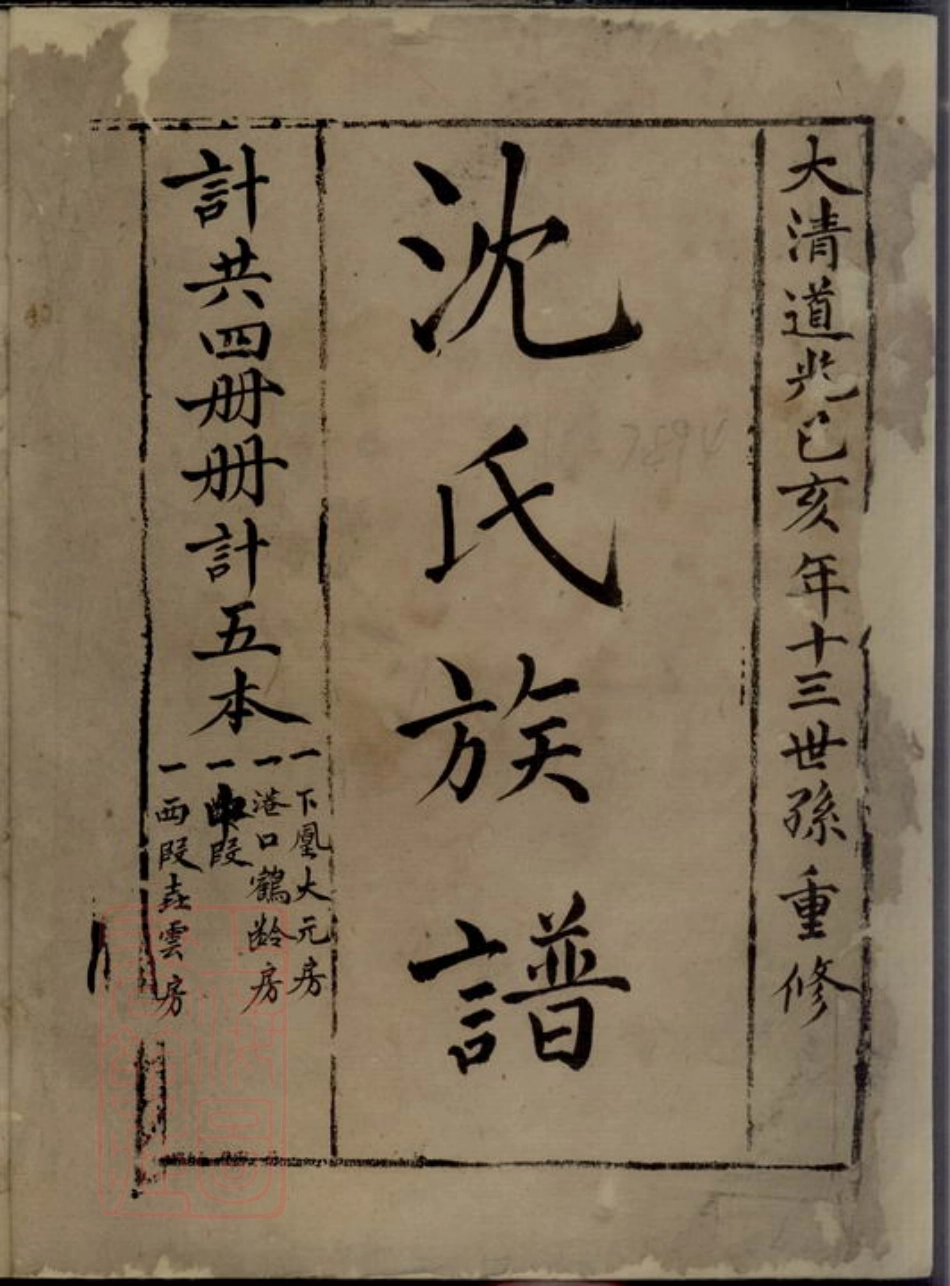 大清道光己亥年十三世孫重修
沈氏族譜
計共四册册計五本
一下鳳大元房
一港口鶴齡房
一中段
一西段壵雲房
7894